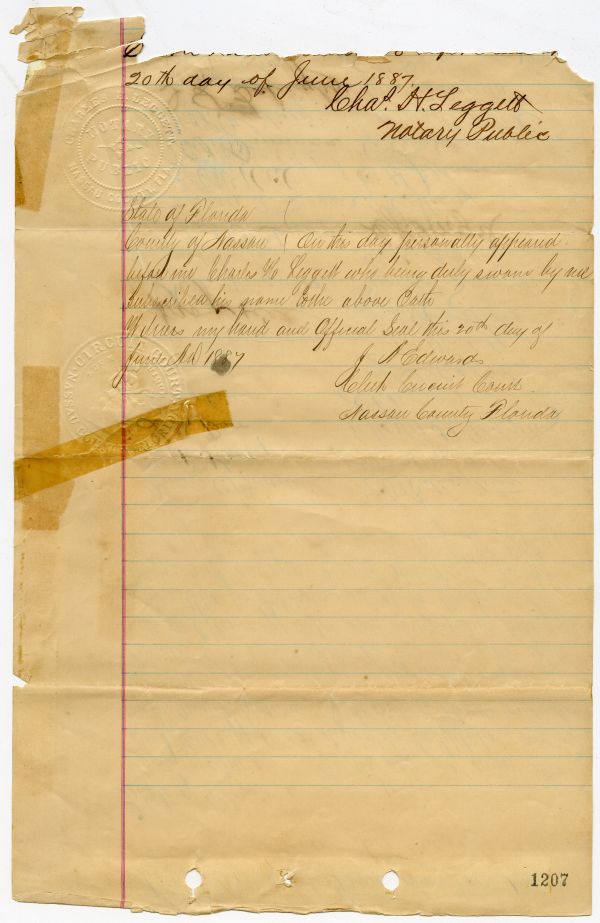 20th day of June 1887
Chas. H. Leggett
Notary Public
NOTARY
PUBLIC
State of Florida
County of Nassau } On this day personally appeared
before me Charles H Leggett who being duly sworn by me
Subscribed his name to the above Oath
Witness my hand and Official Seal this 20th day of
June AD 1887
J A Edwards
Clerk Circuit Court
Nassau County Florida
1207